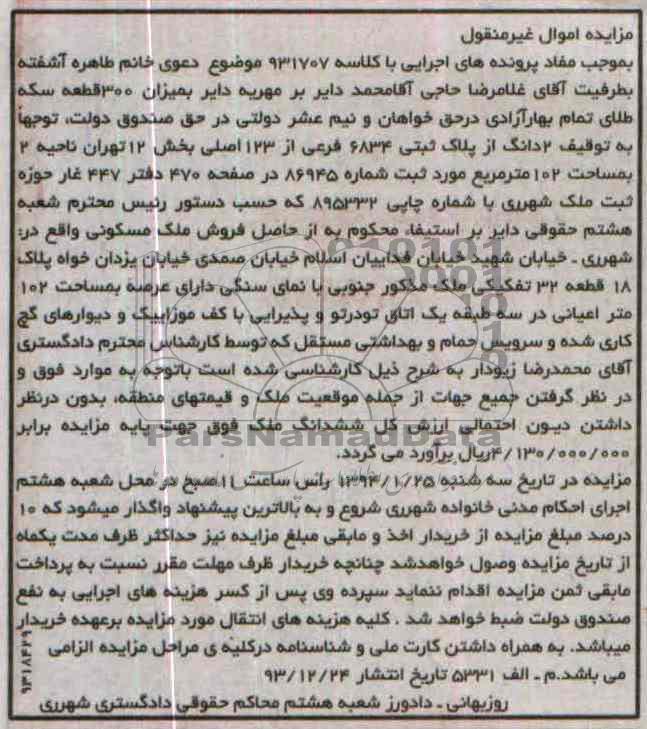 مزایده اموال غیرمنقول
بموجب مفاد پرونده های اجرایی با کلاسه ۹۳۱۷۰۷ موضوع دعوی خانم طاهره آشفته
بطرفیت آقای غلامرضا حاجی آقامحمد دایر بر مهریه دایر بمیزان ۳۰۰قطعه سکه
طلای تمام بهارآزادی درحق خواهان و نیم عشر دولتی در حق صندوق دولت، توجهاً
به توقیف ۲دانگ از پلاک ثبتی ۶۸۳۴ فرعی از ۱۲۳اصلی بخش ۱۲تهران ناحیه ۲
بمساحت ۱۰۲مترمربع مورد ثبت شماره ۸۶۹۴۵ در صفحه ۴۷۰ دفتر ۴۴۷ غار حوزه
ثبت ملک شهرری با شماره چاپی ۸۹۵۳۳۲ که حسب دستور رئیس محترم شعبه
هشتم حقوقی دایر بر استیفاء محکوم به از حاصل فروش ملک مسکونی واقع در:
شهرری ـ خیابان شهید خیابان فداییان اسلام خیابان صمدی خیابان یزدان خواه پلاک
۱۸ قطعه ۳۲ تفکیکی ملک مذکور جنوبی با نمای سنگی دارای عرصه بمساحت ۱۰۲
متر اعیانی در سه طبقه یک اتاق تودرتو و پذیرایی با کف موزاییک و دیوارهای گچ
کاری شده و سرویس حمام و بهداشتی مستقل که توسط کارشناس محترم دادگستری
آقای محمدرضا زیودار به شرح ذیل کارشناسی شده است باتوجه به موارد فوق و
در نظر گرفتن جمیع جهات از جمله موقعیت ملک و قیمتهای منطقه، بدون درنظر
داشتن دیون احتمالی ارزش کل ششدانگ ملک فوق جهت پایه مزایده برابر
۴/۱۳۰/۰۰۰/۰۰۰ریال برآورد می گردد.
مزایده در تاریخ سه شنبه ۱۳۹۴/۱/۲۵ رأس ساعت ۱۱صبح در محل شعبه هشتم
اجرای احکام مدنی خانواده شهرری شروع و به بالاترین پیشنهاد واگذار میشود که ۱۰
درصد مبلغ مزایده از خریدار اخذ و مابقی مبلغ مزایده نیز حداکثر ظرف مدت یکماه
از تاریخ مزایده وصول خواهدشد چنانچه خریدار ظرف مهلت مقرر نسبت به پرداخت
مابقی ثمن مزایده اقدام ننماید سپرده وی پس از کسر هزینه های اجرایی به نفع
صندوق دولت ضبط خواهد شد . کلیه هزینه های انتقال مورد مزایده برعهده خریدار
میباشد. به همراه داشتن کارت ملی و شناسنامه درکلیه ی مراحل مزایده الزامی
می باشد.م ـ الف ۵۳۳۱ تاریخ انتشار ۹۳/۱۲/۲۴
روزبهانی ـ دادورز شعبه هشتم محاکم حقوقی دادگستری شهرری
۹۳۱۸۴۲۹
ParsNamadData